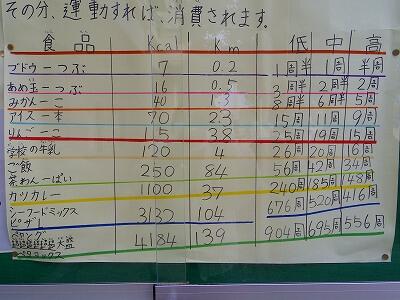 その分、運動すれば、消費されます。
食品 Kcal Km 低 中 高
ブドウ一つぶ 7 0.2 1周半 1周 半周
あめ玉一つぶ 16 0.5 3周 2周半 2周
みかん一こ 40 1.3 8周 6周 5周
アイス一本 70 2.3 15周 11周 9周
りんご一こ 115 3.8 25周 19周 15周
学校の牛乳 120 4 26周 20周 16周
ご飯
茶わん一ぱい 250 84 56周 42周 34周
カツカレー 1100 37 240周 185周 148周
シーフードミックス
ピザL 3132 104 676周 520周 416周
ペヤング
4184 139 904周 695周 556周